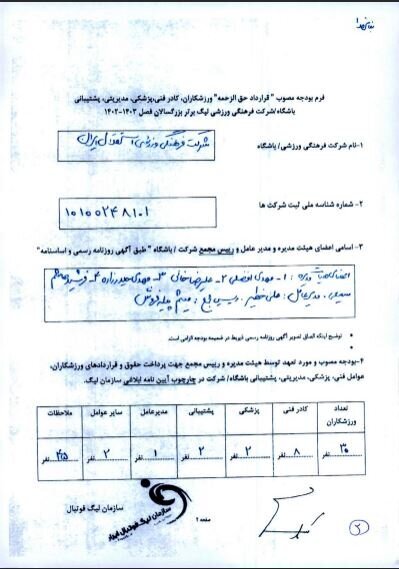 فرم بودجه مصوب "قرارداد حق الزحمه" ورزشکاران، کادر فنی،پزشکی، مدیریتی، پشتیبانی
باشگاه/شرکت فرهنگی ورزشی لیگ برتر بزرگسالان فصل ۱۴۰۳-۱۴۰۲
۱-نام شرکت فرهنگی ورزشی/ باشگاه
شرکت فرهنگی ورزشی استقلال ایران
۲- شماره شناسه ملی ثبت شرکت ها
۱۰۱۰۰۲۴۸۱۰۱
۳- اسامی اعضای هیئت مدیره و مدیر عامل و رییس مجمع شرکت / باشگاه " طبق آگهی روزنامه رسمی و اساسنامه"
اعضای هیات مدیره : ۱- مهدی افضلی ۲- علیرضا ۳- مهدی ۴- فرشید
مدیرعامل: علی خطیر. رییس مجمع: میثم
توضیح اینکه الصاق تصویر آگهی روزنامه رسمی ذیربط در ضمیمه بودجه الزامی است.
۴-بودجه مصوب و مورد تعهد توسط هیئت مدیره و رییس مجمع جهت پرداخت حقوق و قراردادهای ورزشکاران،
عوامل فنی، پزشکی، مدیریتی، پشتیبانی باشگاه/ شرکت در چارچوب آیین نامه ابلاغی سازمان لیگ.
تعداد ورزشکاران کادر فنی پزشکی پشتیبانی مدیرعامل سایر عوامل ملاحظات
۳۰ نفر ۸ نفر ۲ نفر ۲ نفر ۱ نفر ۲ نفر ۴۵ نفر
سازمان لیگ فوتبال
سازمان لیگ فوتبال ایران
صفحه ۱